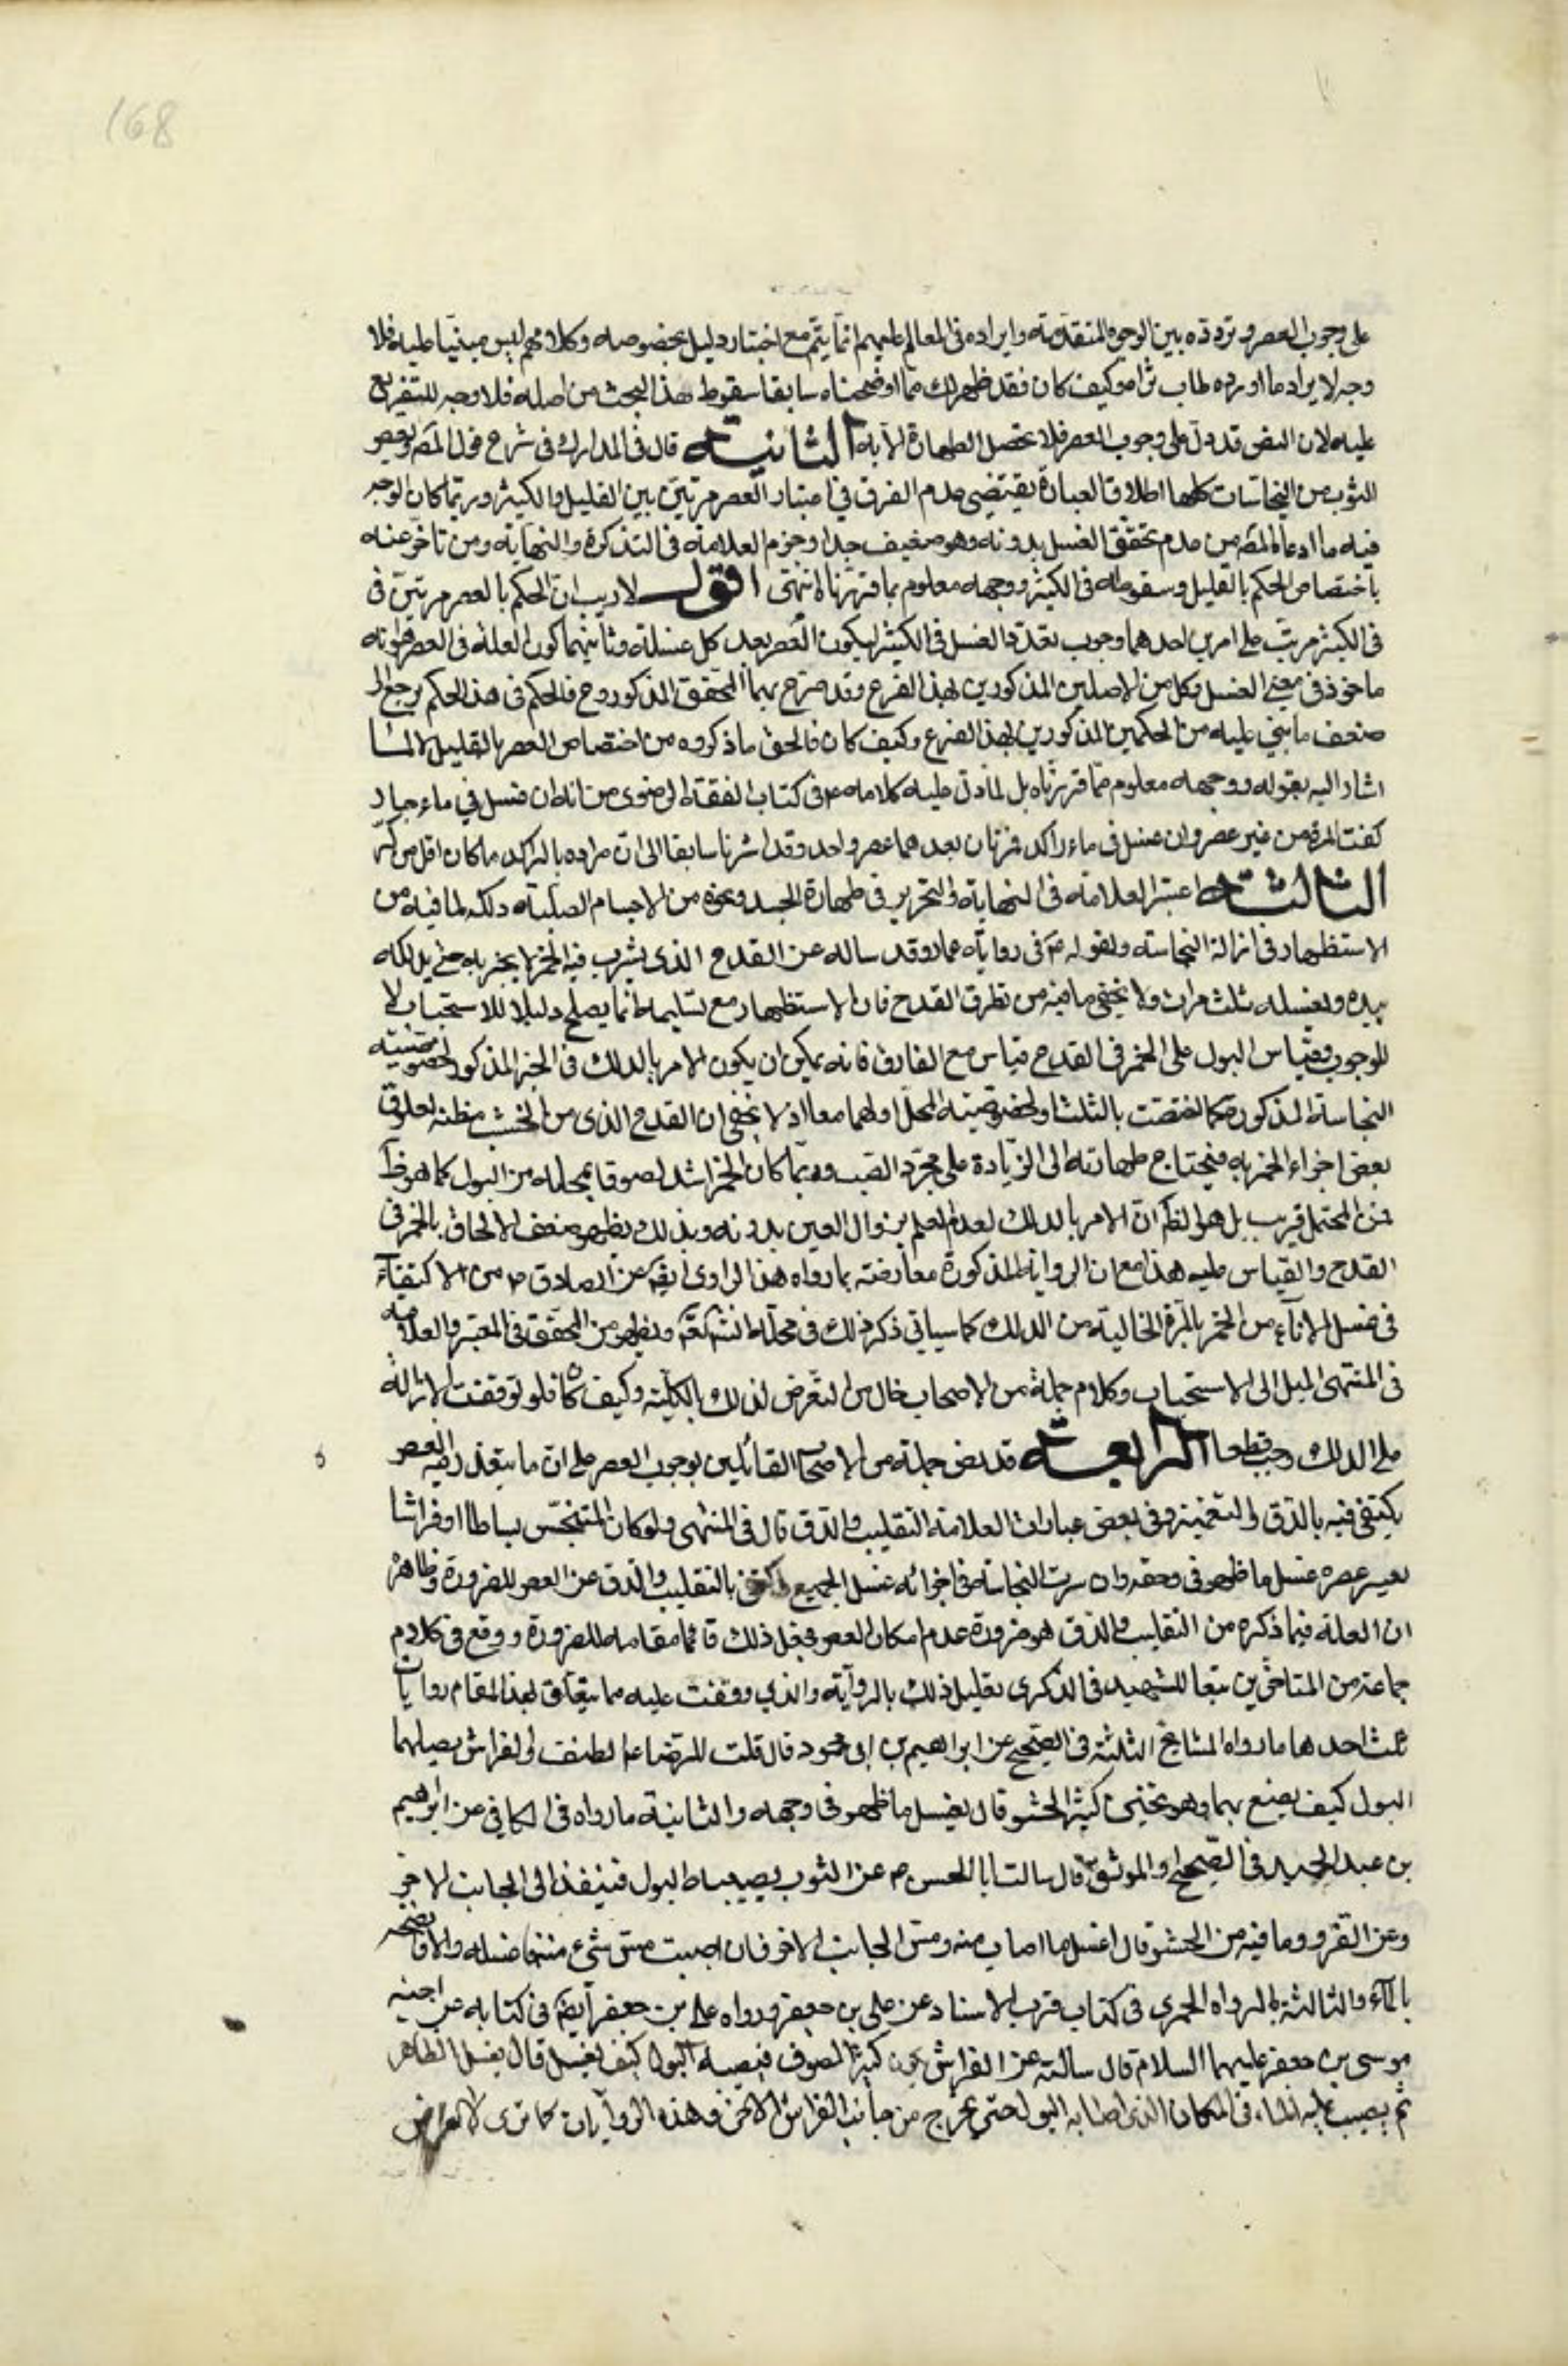 168
على وجوب العصر وتردده بين الوجوه المتقدمة وايراده فى المعالم عليهم انما يتم مع اختيار دليل بخصوصه وكلامهم ليس مبنيا عليه فلا
وجه لايراد ما اورده طاب ثراه وكيف كان فقد ظهر لك مما اوضحناه سابقا سقوط هذا البحث من اصله فلا وجه للتفريع
عليه لان النص قد دل على وجوب العصر فلا تحصل الطهارة الا به الثانية قال فى المدارك فى شرح قول المصر ويعصر
الثوب من النجاسات كلها اطلاق العبارة يقتضى عدم الفرق فى اعتبار العصر مرتين بين القليل والكثير وربما كان الوجه
فيه ما ادعاه المصر من عدم تحقق الغسل بدونه وهو ضعيف جدا وجزم العلامة فى التذكرة والنهاية ومن تاخر عنه
باختصاص الحكم بالقليل وسقوطه فى الكثير ووجهه معلوم بما قررناه انتهى اقول لا ريب ان الحكم بالعصر مرتين فى
فى الكثير مرتب على امرين احدهما وجوب تعدد الغسل فى الكثير ليكون العصر بعد كل غسلة وثانيهما كون العلة فى العصر هو انه
ماخوذ فى معنى الغسل وكل من الاصلين المذكورين لهذا الفرع وقد صرح بهما المحقق المذكور وح فالحكم فى هذا الحكم يرجع الى
ضعف ما بنى عليه من الحكمين المذكورين لهذا الفرع وكيف كان فالحق ما ذكروه من اختصاص العصر بالقليل لا لما
اشار اليه بقوله ووجهه معلوم مما قررناه بل لما دل عليه كلامه ع فى كتاب الفقه الرضوى من انه ان غسل فى ماء جار
كفت المرة من غير عصر وان غسل فى ماء راكد فمرتان بعدهما عصر واحد وقد اشرنا سابقا الى ان مراده بالراكد ما كان اقل من كر
الثالثة اعتبر العلامة فى النهاية والتحرير فى طهارة الجسد ونحوه من الاجسام الصلبة دلكه لما فيه من
الاستظهار فى ازالة النجاسة ولقوله ع فى رواية عمار وقد ساله عن القدح الذى يشرب فيه الخمر لا يجزيه حتى يدلكه
بيده ويغسله ثلث مرات ولا يخفى ما فيه من تطرق القدح فان الاستظهار مع تسليمه انما يصلح دليلا للاستحباب لا
للوجوب وقياس البول على الخمر فى القدح قياس مع الفارق فانه يمكن ان يكون الامر بالدلك فى الخبر المذكور لخصوصية
النجاسة المذكورة كما اختصت بالثلث او لخصوصية المحل او لهما معا اذ لا يخفى ان القدح الذى من الخشب مظنة لعلوق
بعض اجزاء الخمر به فيحتاج طهارته الى الزيادة على مجرد الصب وربما كان الخمر اشد لصوقا بمحله من البول كما هو ظ
فمن المحتمل قريب بل هو الظم ان الامر بالدلك لعدم العلم بزوال العين بدونه وبذلك يظهر ضعف الالحاق بالخمر فى
القدح والقياس عليه هذا مع ان الرواية المذكورة معارضة بما رواه هذا الراوى ايضه عن الصادق ع من الاكتفاء
فى غسل الاناء من الخمر بالمرة الخالية من الدلك كما سياتى ذكر ذلك فى محله انشه تعه ويظهر من المحقق فى المعتبر والعلامة
فى المنتهى الميل الى الاستحباب وكلام جملة من الاصحاب خال من التعرض لذلك بالكلية وكيف كان فلو توقفت الازالة
على الدلك وجب قطعا الرابعة قد نص جملة من الاصحاب القائلين بوجوب العصر على ان ما يتعذر فيه العصر
يكتفى فيه بالدق والتغميز وفى بعض عبارات العلامة التقليب والدق قال فى المنتهى ولو كان المتنجس بساطا او فراشا
يعسر عصره غسل ما ظهر فى وجهه وان سرت النجاسة فى اجزائه غسل الجميع واكتفى بالتقليب والدق عن العصر للضرورة وظاهره
ان العلة فيما ذكره من التقليب والدق هو ضرورة عدم امكان العصر فجعل ذلك قائما مقامه للضرورة ووقع فى كلام
جماعة من المتاخرين تبعا للشهيد فى الذكرى تعليل ذلك بالرواية والذى وقفت عليه مما يتعلق بهذا المقام روايات
ثلث احدها ما رواه المشايخ الثلثة فى الصحيح عن ابراهيم بن ابى محمود قال قلت للرضا ع الطنفسة والفراش يصيبهما
البول كيف يصنع بهما وهو ثخين كثير الحشو قال يغسل ما ظهر فى وجهه والثانية ما رواه فى الكافى عن ابراهيم
بن عبد الحميد فى الصحيح او الموثق قال سالت ابا الحسن ع عن الثوب يصيبه البول فينفذ الى الجانب الاخر
وعن الفرو وما فيه من الحشو قال اغسل ما اصاب منه ومس الجانب الاخر فان اصبت مس شىء منه فاغسله والا فانضحه
بالماء والثالثة ما رواه الحميرى فى كتاب قرب الاسناد عن على بن جعفر ورواه على بن جعفر ايضه فى كتابه عن اخيه
موسى بن جعفر عليهما السلام قال سالته عن الفراش يكون كثير الصوف فيصيبه البول كيف يغسل قال يغسل الظاهر
ثم يصب عليه الماء فى المكان الذى اصابه البول حتى يخرج من جانب الفراش الاخر وهذه الروايات كما ترى لا تعرض